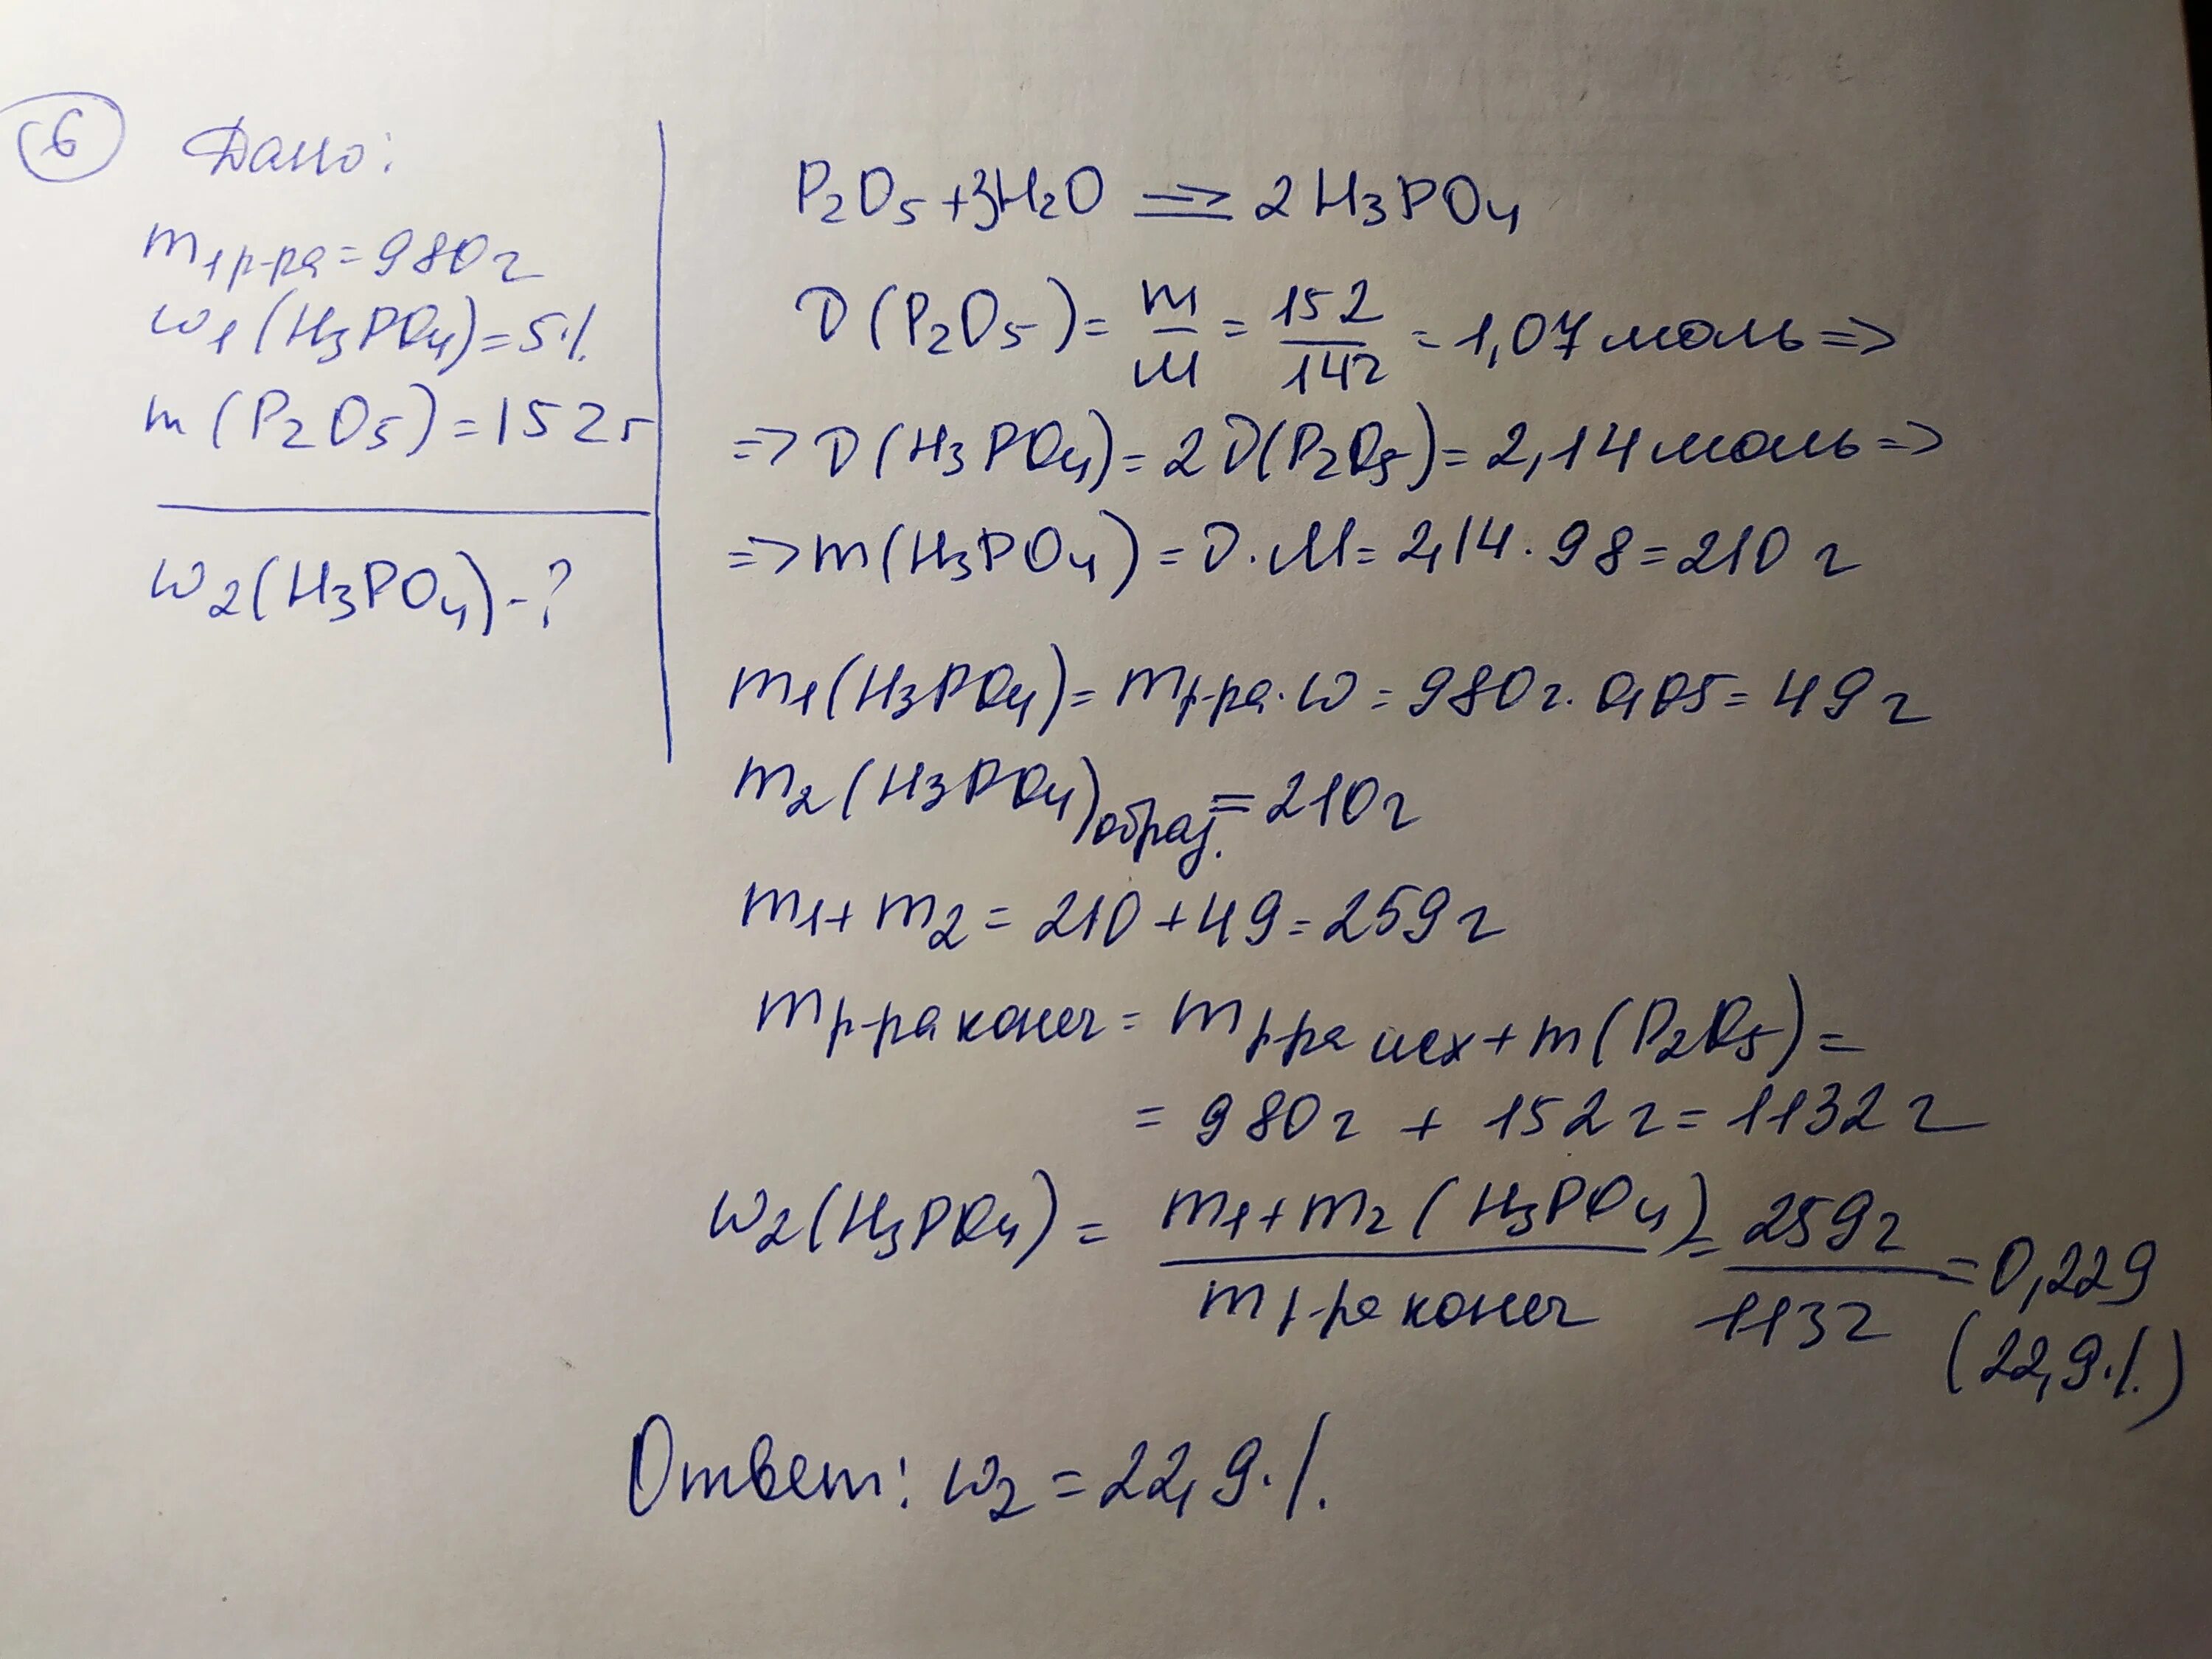 6 Дано:
m₁р-ра = 980 г
ω₁(H₃PO₄) = 5%
m(P₂O₅) = 152 г
ω₂(H₃PO₄) - ?
P₂O₅ + 3H₂O => 2H₃PO₄
ν(P₂O₅) = m/M = 152/142 = 1,07 моль =>
=> ν(H₃PO₄) = 2ν(P₂O₅) = 2,14 моль =>
=> m(H₃PO₄) = ν · M = 2,14 · 98 = 210 г
m₁(H₃PO₄) = mр-ра · ω = 980 г · 0,05 = 49 г
m₂(H₃PO₄)образ. = 210 г
m₁ + m₂ = 210 + 49 = 259 г
mр-ра конеч = mр-ра исх + m(P₂O₅) =
= 980 г + 152 г = 1132 г
ω₂(H₃PO₄) = m₁ + m₂(H₃PO₄) / mр-ра конеч = 259 г / 1132 = 0,229
(22,9%)
Ответ: ω₂ = 22,9%.